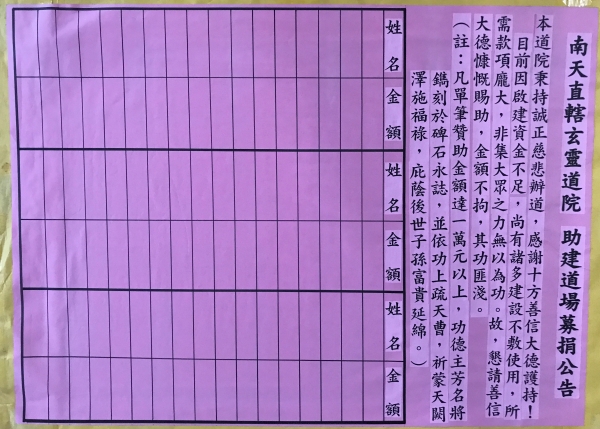 南天直轄玄靈道院 助建道場募捐公告
本道院秉持誠正慈悲辦道，感謝十方善信大德護持！
目前因啟建資金不足，尚有諸多建設不敷使用，所
需款項龐大，非集大眾之力無以為功。故，懇請善信
大德慷慨賜助，金額不拘，其功匪淺。
（註：凡單筆贊助金額達一萬元以上，功德主芳名將
鐫刻於碑石永誌，並依功上疏天曹，祈蒙天闕
澤施福祿，庇蔭後世子孫富貴延綿。）
姓名
金額
姓名
金額
姓名
金額